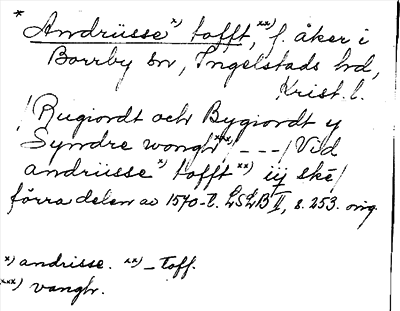 * Andriisse ˣ⁾ tofft, ˣˣ⁾ f. åker i
Borrby sn, Ingelstads hd,
Krist. l.
/Rugiordt och Bygiordt y
Syndre wongh ˣˣˣ⁾ / - - - / Vid
andriisse ˣ⁾ tofft ˣˣ⁾ iij ske/
förra delen av 1570-t. LSLB II, s. 253. orig.
ˣ⁾ andrisse. ˣˣ⁾ – toff.
ˣˣˣ⁾ vangh.